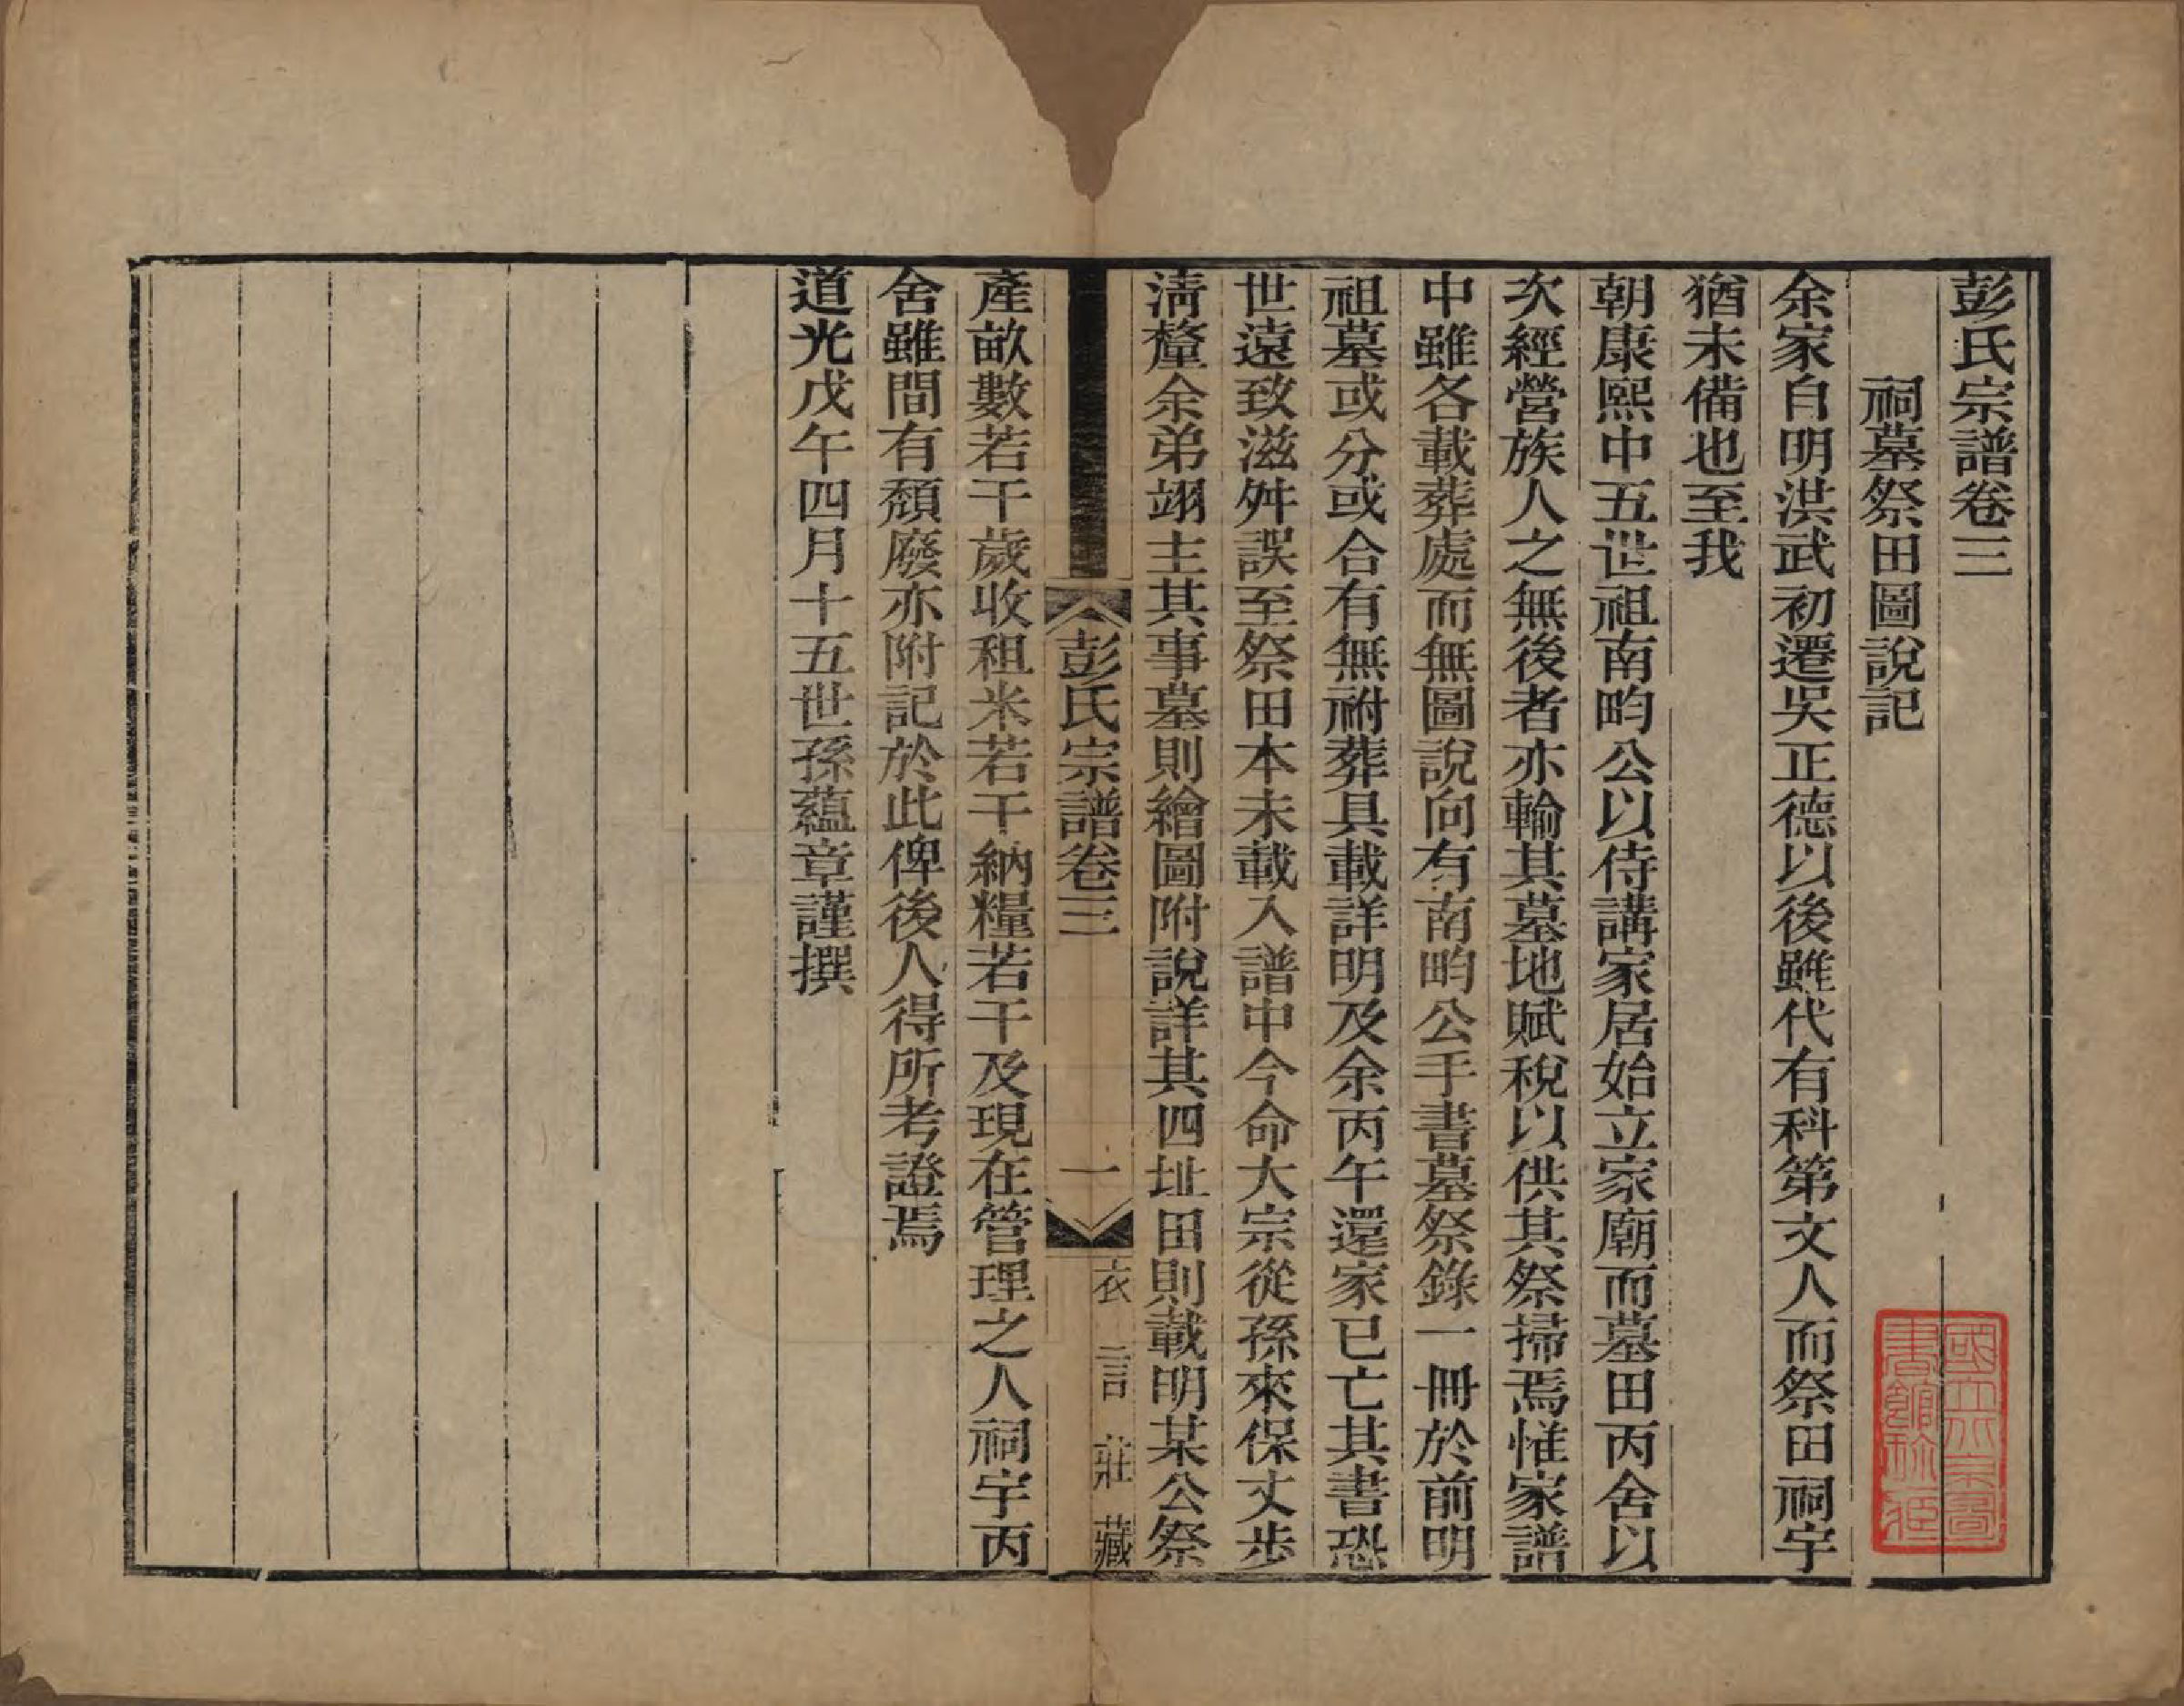 彭氏宗譜卷三
祠墓祭田圖說記
余家自明洪武初遷吳正德以後雖代有科第文人而祭田祠宇
猶未備也至我
朝康熙中五世祖南畇公以侍講家居始立家廟而墓田丙舍以
次經營族人之無後者亦輸其墓地賦稅以供其祭掃焉惟家譜
中雖各載葬處而無圖說向有南畇公手書墓祭錄一冊於前明
祖墓或分或合有無祔葬具載詳明及余丙午還家已亡其書恐
世遠致滋舛誤至祭田本未載入譜中今命大宗從孫來保丈步
淸釐余弟翊主其事墓則繪圖附說詳其四址田則載明某公祭
彭氏宗譜卷三
一
衣言莊藏
產畝數若干歲收租米若干納糧若干及現在管理之人祠宇丙
舍雖間有頹廢亦附記於此俾後人得所考證焉
道光戊午四月十五世孫蘊章謹撰
國立北京圖
書館珍藏